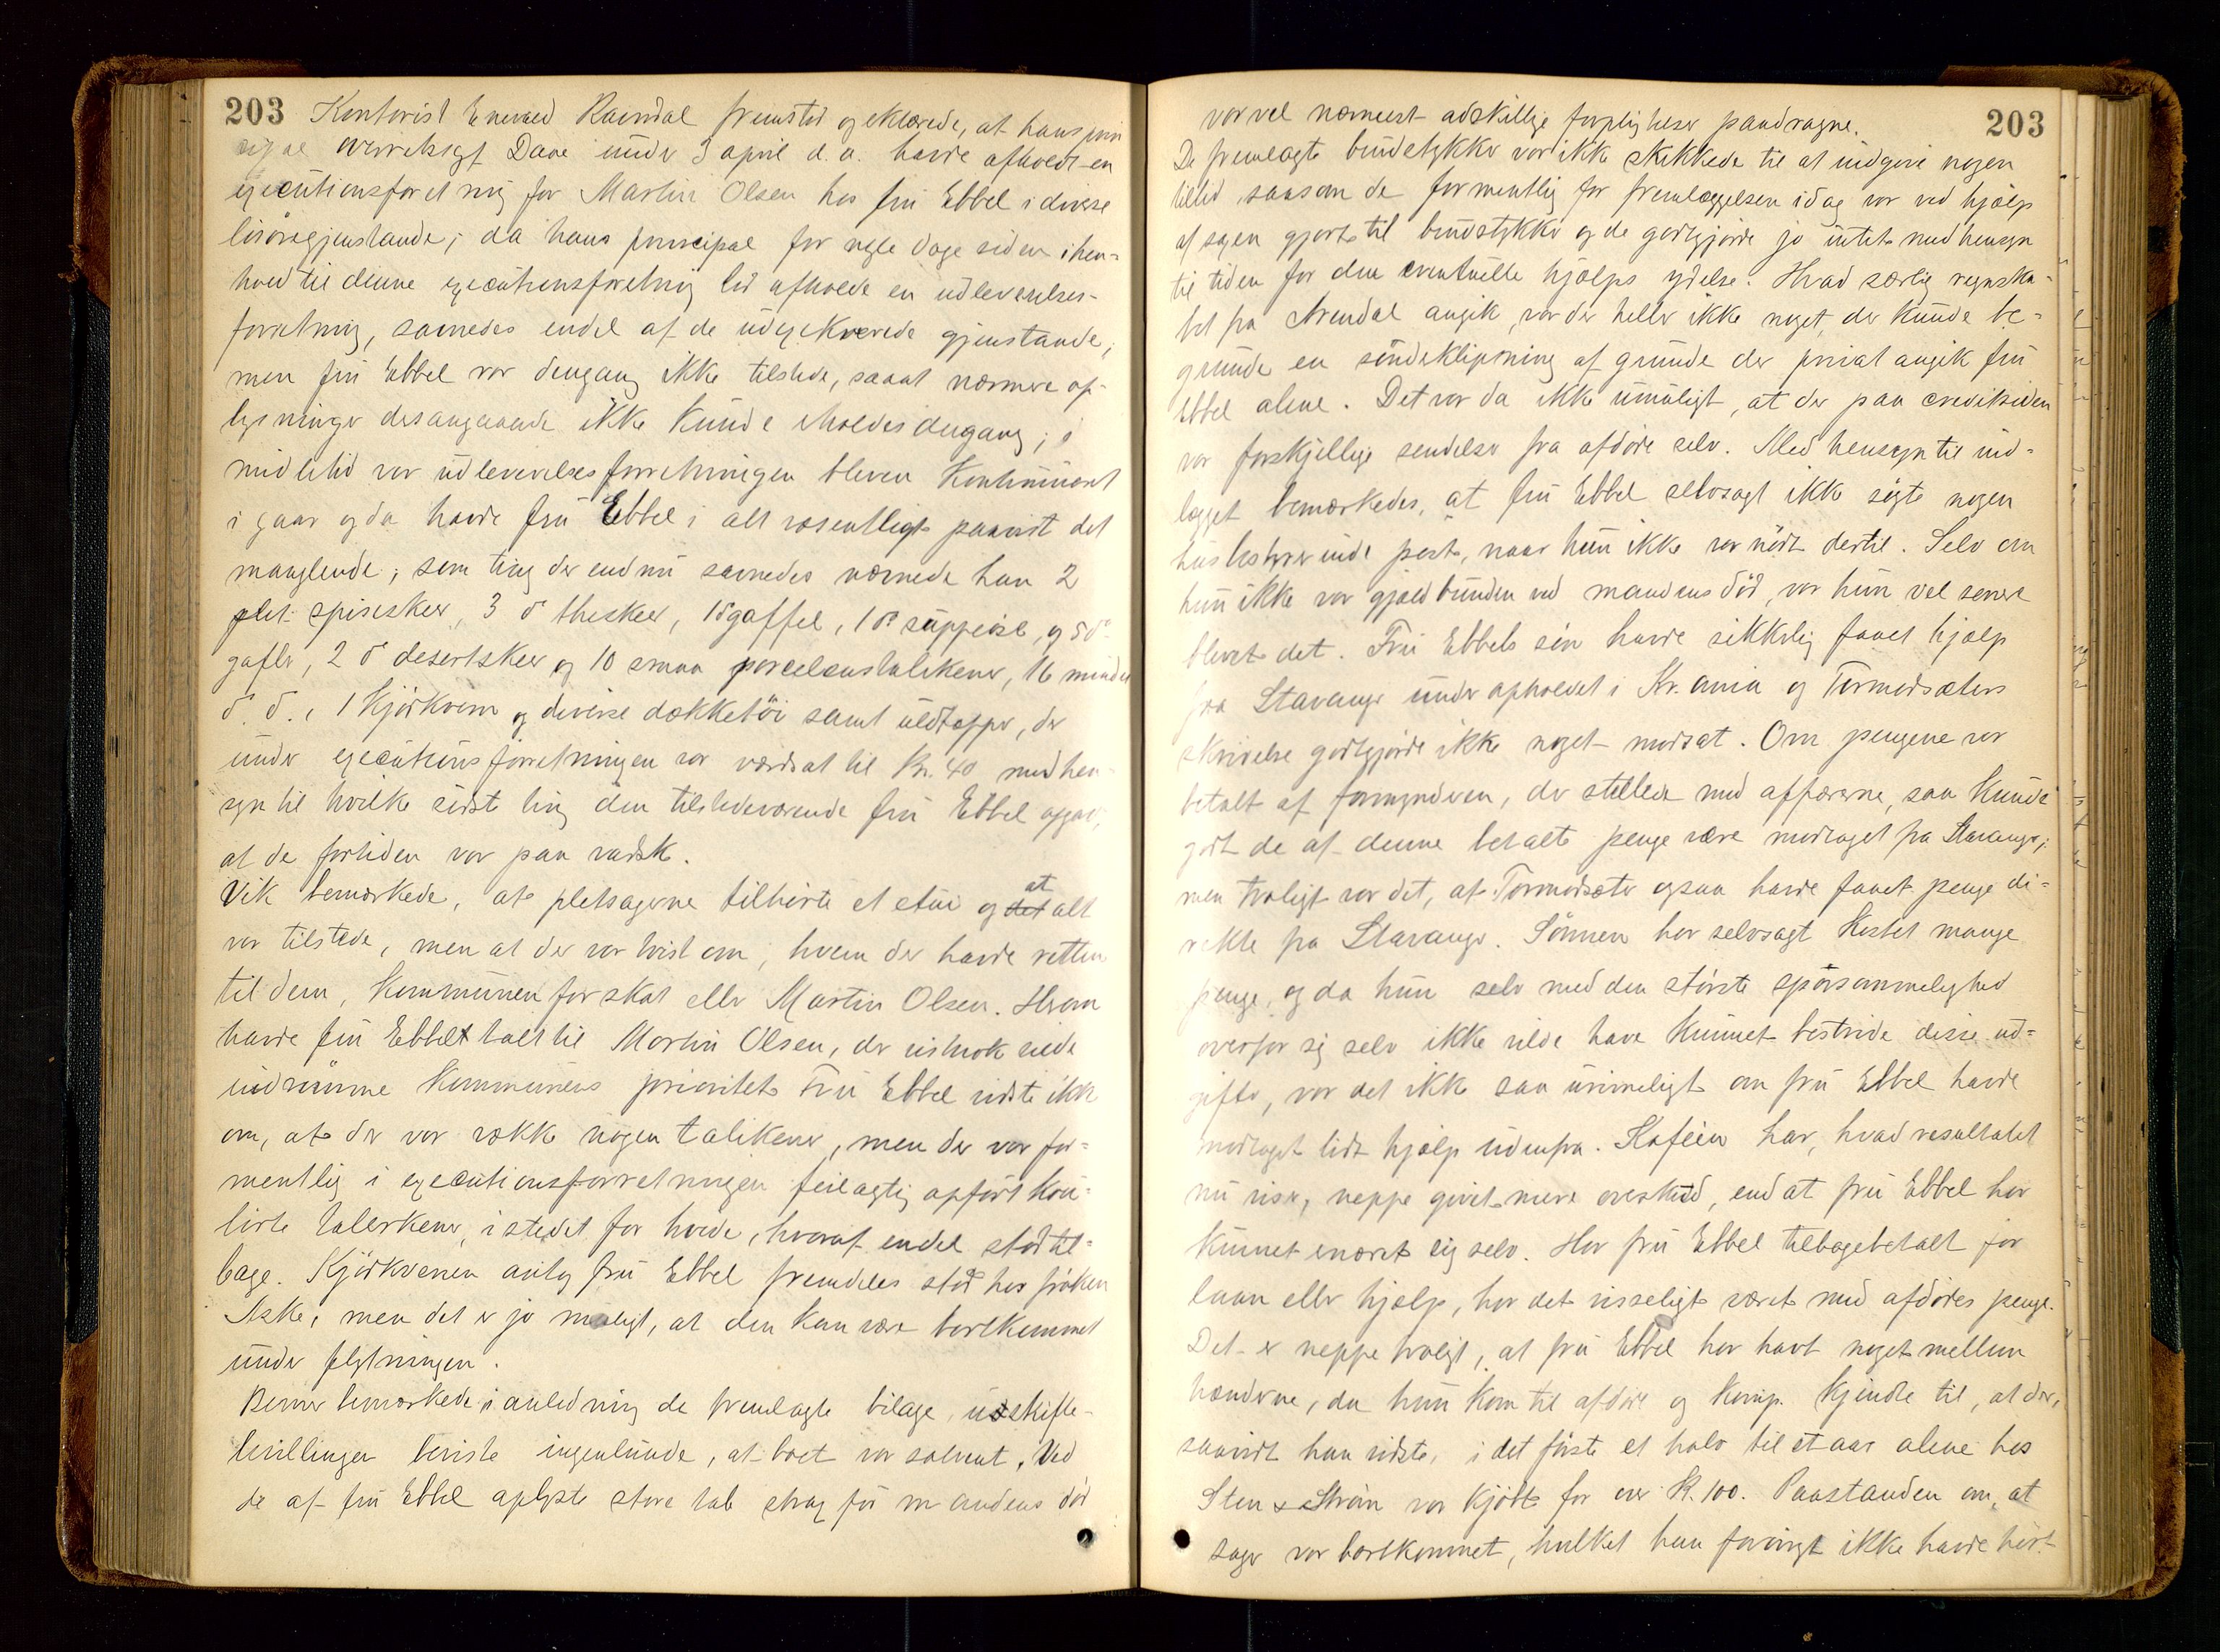 203 Kontorist Enevald Ravndal fremstod og erklærede, at hans prin
cipal overretssagf. Dave under 3 april d. a. havde afholdt en
executionsforretning for Martin Olsen hos fru Ebbel i diverse
løsøregjenstande; da hans principal for nogle dage siden i hen=
hold til denne executionsforetning lod afholde en udleverelses-
forretning, savnedes endel af de udexekverede gjenstande,
men fru Ebbel var dengang ikke tilstede, saaat nærmere op-
lysninger desangaaende ikke kunde erholdes dengang; i
midlertid var udleverelsesforretningen bleven kontinueret
i gaar og da havde fru Ebbel i alt væsentligt paavist det
manglende; som ting der endnu savnedes nævnede han 2
plet spiseskeer, 3 do theskeer, 1 do gaffel, 1 do suppeøse, og 5 do
gafler, 2 do desertskeer og 10 smaa porcelænstalerkener, 16 mindre
do. do., 1 Kjødkvern og diverse dækketøi samt uldtæpper, der
under executionsforretningen var værdsat til Kr. 40 med hen-
syn til hvilke sidste ting den tilstedeværende fru Ebbel opgav,
at de fortiden var paa vadsk.
Vik bemærkede, at pletsagerne tilhørte et etui og det at alt
var tilstede, men at der var tvist om, hvem der havde retten
til dem, Kommunen for skat eller Martin Olsen. Herom
havde fru Ebbel talt til Martin Olsen, der vistnok vilde
indrømme Kommunens prioritet. Fru Ebbel vidste ikke
om, at der var vække nogen talerkener, men der var for=
mentlig i executionsforretningen feilagtig opført kou=
lørte talerkener, istedet for hvide, hvoraf endel stod til=
bage. Kjødkvernen antog fru Ebbel fremdeles stod hos frøken
Aske, men det er jo muligt, at den kan være bortkommet
under flytningen.
Berner bemærkede i anledning de fremlagte bilage, uskifte-
bevillingen beviste ingenlunde, at boet var solvent. Ved
de af fru Ebbel oplyste store tab strax før mandens død
var vel nærmest adskillige forpligtelser paadragne. 203
De fremlagte bundstykker var ikke skikkede til at indgive nogen
tillid, saasom de formentlig for fremlæggelsen idag var ved hjælp
af sagen gjort til bundstykker og de godtgjorde jo intet med hensyn
til tiden for den eventuelle hjælps ydelse. Hvad særlig regnska-
bet fra Arendal angik, var der heller ikke noget, der kunde be=
grunde en sønderklipning af grunde der privat angik fru
Ebbel alene. Det var da ikke umuligt, at der paa creditsiden
var forskjellige sendelser fra afdøde selv. Med hensyn til ind=
lægget bemærkedes, at fru Ebbel selvsagt ikke søgte nogen
husbestyrerinde post, naar hun ikke var nødt dertil. Selv om
hun ikke var gjældbunden ved mandens død, var hun vel senere
blevet det. Fru Ebbels søn havde sikkerlig faaet hjælp
fra Stavanger under opholdet i Kr.ania og Tormodsæters
skrivelse godtgjorde ikke noget modsat. Om pengene var
betalt af formynderen, der stellede med affærerne, saa kunde
godt de af denne betalte penge være modtaget fra Stavanger;
men troligt var det, at Tormodsæter ogsaa havde faaet penge di=
rekte fra Stavanger. Sønnen har selvsagt kostet mange
penge, og da hun selv med den største sparsommelighed
overfor sig selv ikke vilde have kunnet bestride disse ud=
gifter, var det ikke saa urimeligt om fru Ebbel havde
modtaget lidt hjælp udenfra. Kafeen har, hvad resultatet
nu viser, neppe givet mere overskud, end at fru Ebbel har
kunnet ernæret sig selv. Har fru Ebbel tilbagebetalt for
laan eller hjælp, har det visseligt været med afdødes penge.
Det er neppe troligt, at fru Ebbel har havt noget mellem
hænderne, da hun kom til afdøde og komp. kjendte til, at der,
saavidt han vidste, i det første et halv til et aar alene hos
Sten & Strøm var kjøbt for over Kr. 100. Paastanden om, at
sager var bortkommet, hvilket han forøvrigt ikke havde hørt